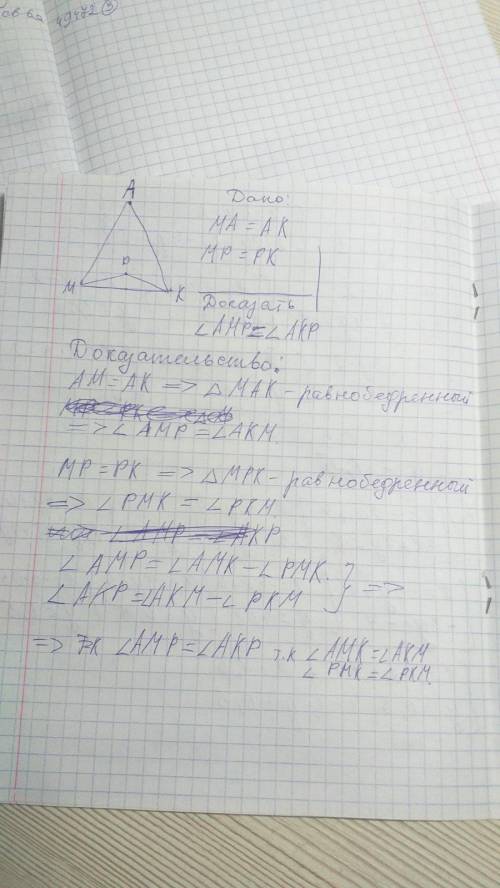 49472 3
A
P
M
K
Дано:
MA = AK
MP = PK
Доказать
∠AMP = ∠AKP
Доказательство:
AM = AK => △ MAK - равнобедренный
=> ∠ AMP = ∠AKM.
MP = PK => △ MPK - равнобедренный
=> ∠ PMK = ∠ PKM
∠ AMP = ∠AMK - ∠ PMK. } =>
∠ AKP = ∠AKM - ∠ PKM
=> ∠AMP = ∠AKP т.к ∠ AMK = ∠AKM
∠ PMK = ∠PKM.